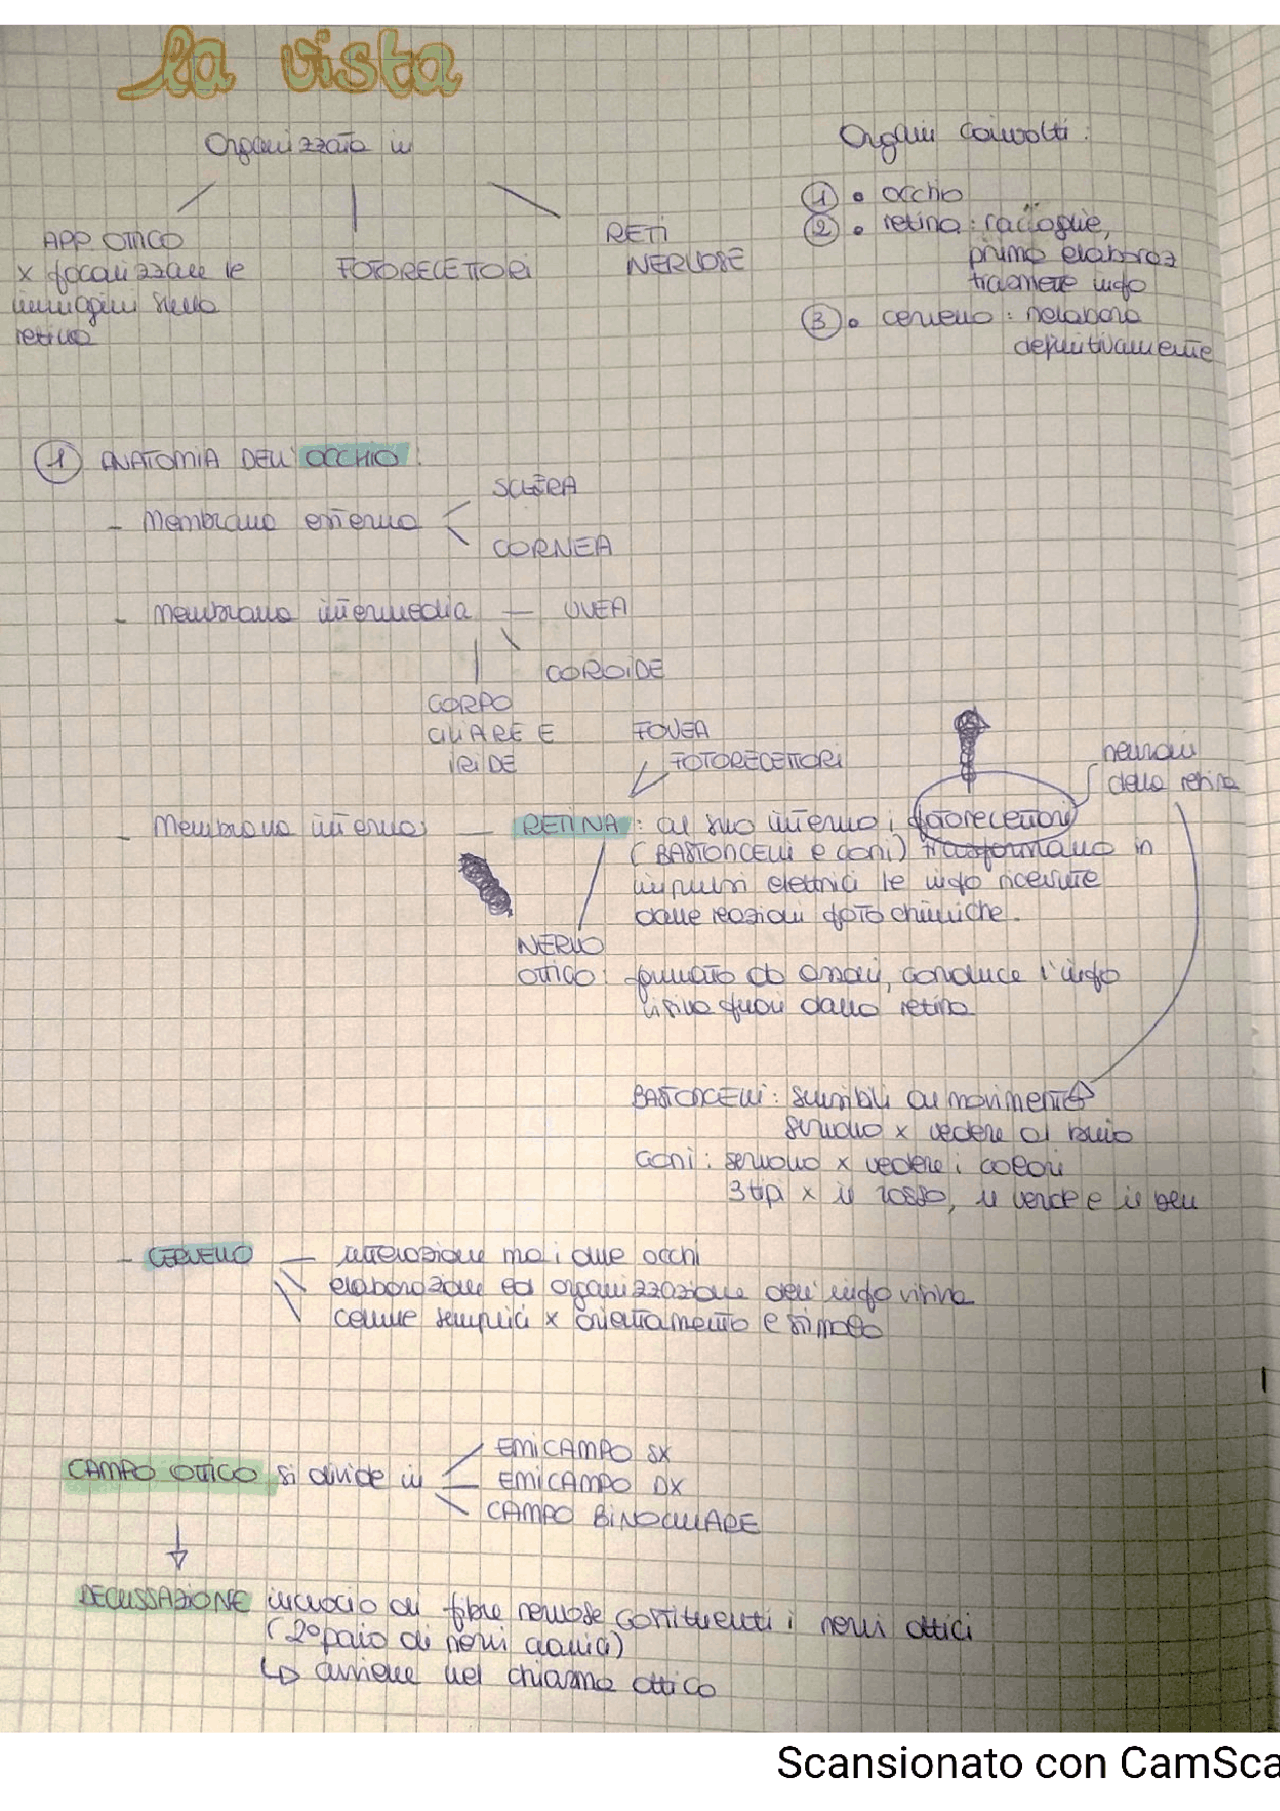 la vista
Organizzata in
APP OTTICO
x focalizzare le
immagini sulla
retina
FOTORECETTORI
RETI
NERVOSE
Organi coinvolti:
1 • occhio
2 • retina: raccoglie,
prima elaboraz
trasmette info
3 • cervello: rielabora
definitivamente
1 ANATOMIA DELL'OCCHIO:
- Membrana esterna
SCLERA
CORNEA
- Membrana intermedia — UVEA
COROIDE
CORPO
CILIARE E
IRIDE
FOVEA
FOTORECETTORI
neuroni
della retina
- Membrana interna: — RETINA: al suo interno i fotorecettori
(BASTONCELLI e coni) trasformano in
impulsi elettrici le info ricevute
dalle reazioni fotochimiche.
NERVO
OTTICO: formato da assoni, conduce l'info
visiva fuori dalla retina
BASTONCELLI: sensibili al movimento
servono x vedere al buio
coni: servono x vedere i colori
3 tipi x il rosso, il verde e il blu
- CERVELLO — interazione tra i due occhi
elaborazione ed organizzazione dell'info visiva
cellule semplici x orientamento e stimolo
CAMPO OTTICO si divide in
EMICAMPO SX
EMICAMPO DX
CAMPO BINOCULARE
DECUSSAZIONE incrocio di fibre nervose costituenti i nervi ottici
(2° paio di nervi cranici)
↳ avviene nel chiasma ottico
Scansionato con CamSca